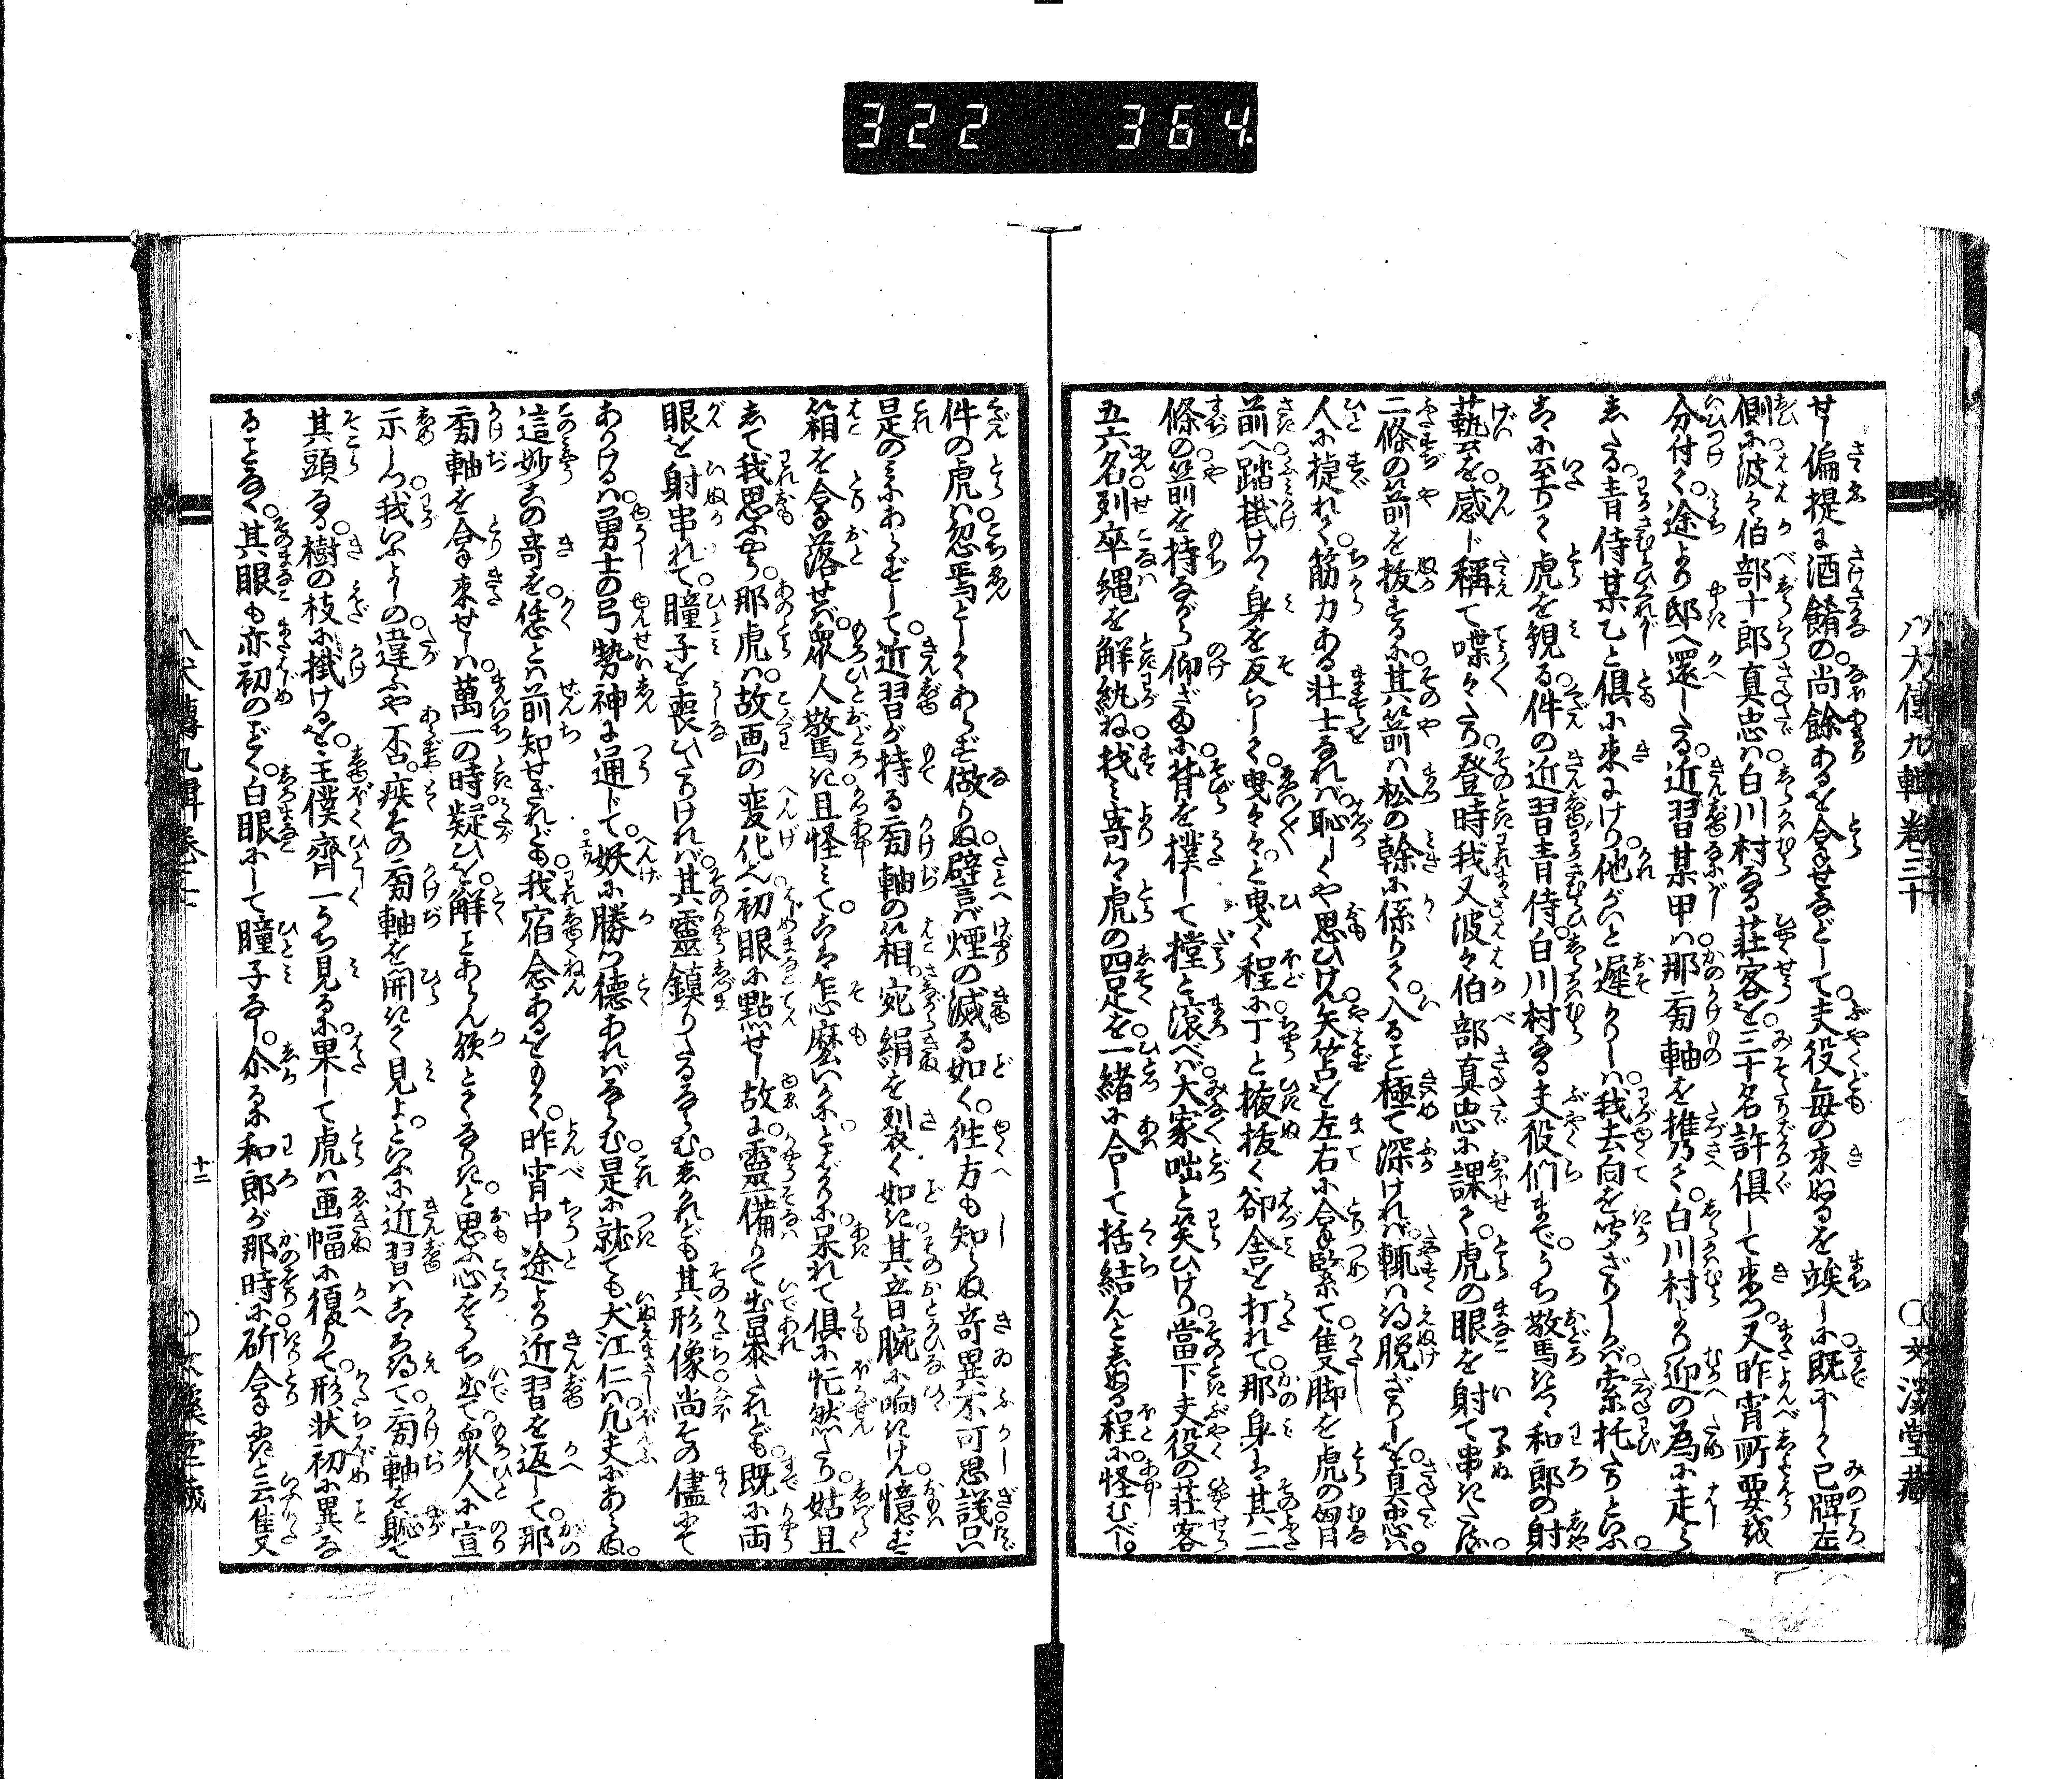 322 364
八犬傳九輯卷三十
○文溪堂藏
せし偏提に酒餚の尚餘あるを拿せなどして夫役毎の来ぬるを竢しに既にして巳牌左
側に波々伯部十郎真忠は白川村なる荘客を三十名許倶して来つ又昨宵所要致
分付て途より邸へ還したる近習某甲は那画軸を携て白川村より迎の為に走ら
したる青侍某乙と倶に来にけり他がいと遅かりしは我去向を定ざりしかば索托たりといふ
爰に至りて虎を観る件の近習青侍白川村なる夫役們までうち驚きつ和郎の射
藝を感じ稱て喋々たり登時我又波々伯部真忠に課て虎の眼を射て串きたる
二條の箭を抜するに其箭は松の幹に係りて入ること極て深ければ輙くは得脱ざりしを真忠は
人に捷れて筋力ある壮士なれば恥しくや思ひけん矢筈を左右に拿緊て隻脚を虎の胸
前へ踏掛けつ身を反らして曳々々と曳く程に丁と抜て卻含を打れて那身は其二
條の箭を持ながら仰ざまに背を撲して撞と滾べば大家咄と笑ひけり當下夫役の荘客
五六名列卒縄を解紈ね找み寄つ虎の四足を一緒に合して括結んとしぬる程に怪むべし
件の虎は忽焉としてあらずなりぬ譬言ば煙の滅る如く徃方も知らぬ奇異不可思議只
是のみにあらずして近習が持る画軸の箱宛絹を裂く如き其音腕に响きけん憶ず
箱を拿落せば衆人驚き且怪みてこは乍麼いかにとばかりに呆れて倶に忙然たり姑且
して我思ふやう那虎は故画の変化也初眼に點せし故に靈備りて出暴たれども既に両
眼を射串れて瞳子を喪ひたりければ其靈鎮りたるならむしかれども其形像尚その儘にて
ありけるは勇士の弓勢神に通じて妖に勝つ德あればならむ是に就ても犬江仁は凡夫にあらぬ
這妙この奇を恁とは前知せざれども我宿念あるをもて昨宵中途より近習を返して那
画軸を拿来せしは萬一の時疑ひを解ことあらん歟とてなりきと思ふ心をうち出て衆人に宣
示しつ我いふよしの違ふや否疾その画軸を開きて見よといふに近習はこゝろ得て画軸を軈て
其頭なる樹の枝に掛けるを主僕齊一うち見るに果して虎は画幅に復りて形状初に異な
ることなく其眼も亦初のごとく白眼にして瞳子なし介るに和郎が那時に斫拿たりと云隻
十二